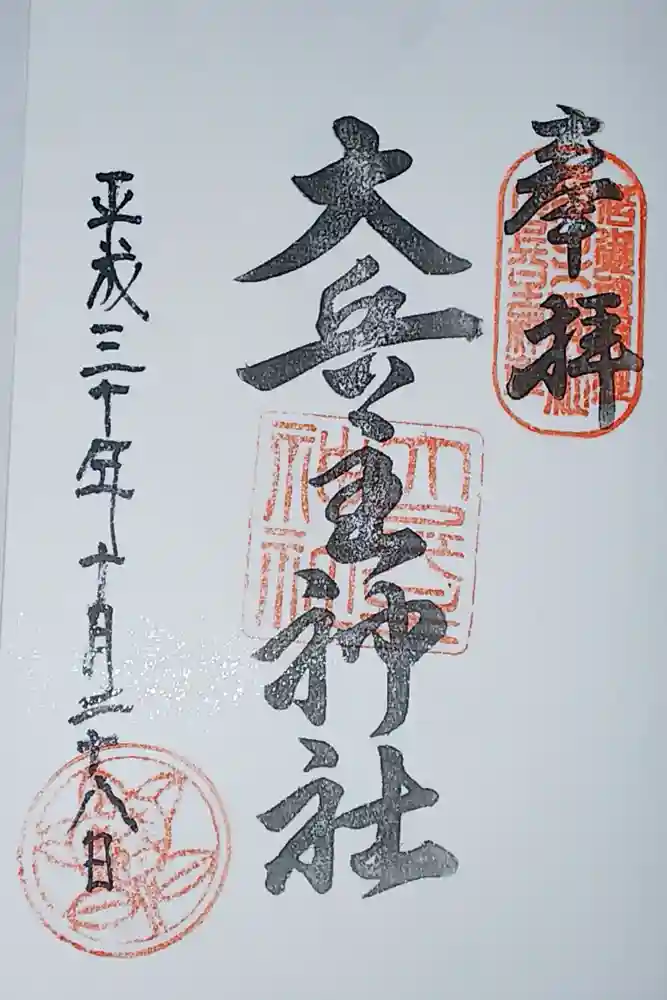 奉拝
大兵主神社
平成三十年十月二十八日